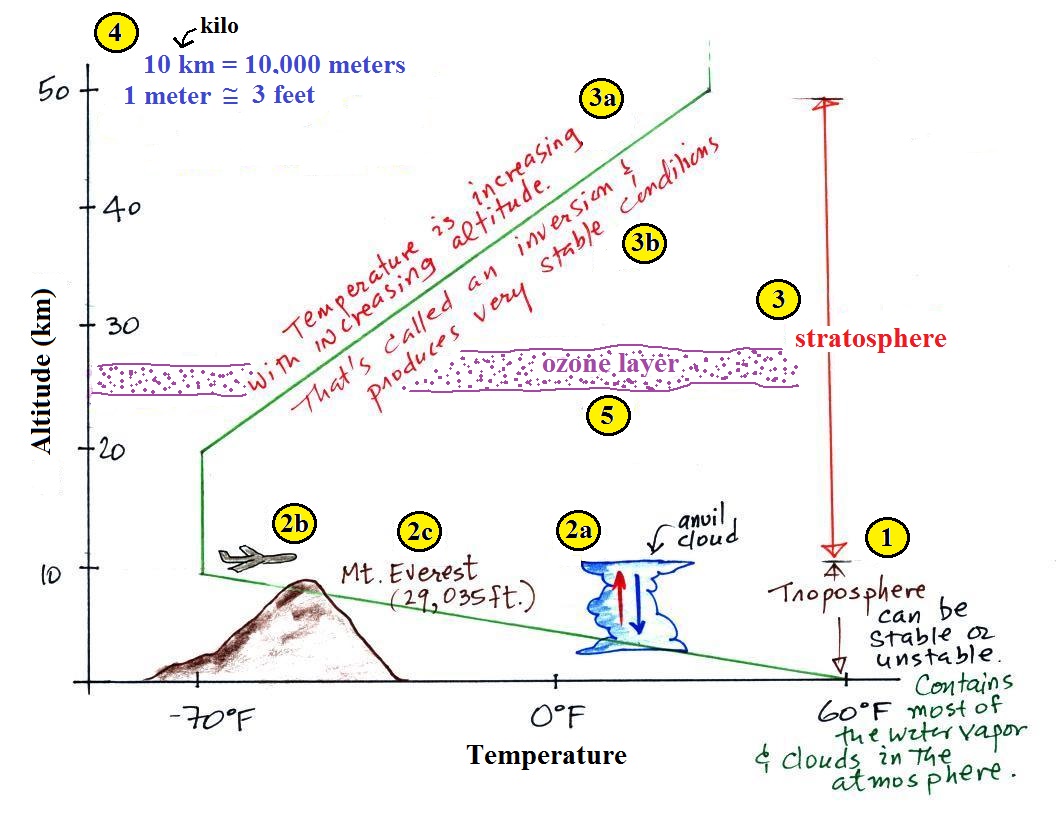 4
kilo
10 km = 10,000 meters
1 meter ≅ 3 feet
50
40
30
20
10
Altitude (km)
3a
Temperature is increasing
with increasing altitude.
That's called an inversion &
produces very stable conditions
3b
3
stratosphere
ozone layer
5
2b
2c
2a
anvil
cloud
1
Mt. Everest
(29,035ft.)
Troposphere
can be
stable or
unstable.
Contains
most of
the water vapor
& clouds in the
atmosphere.
-70°F
0°F
60°F
Temperature